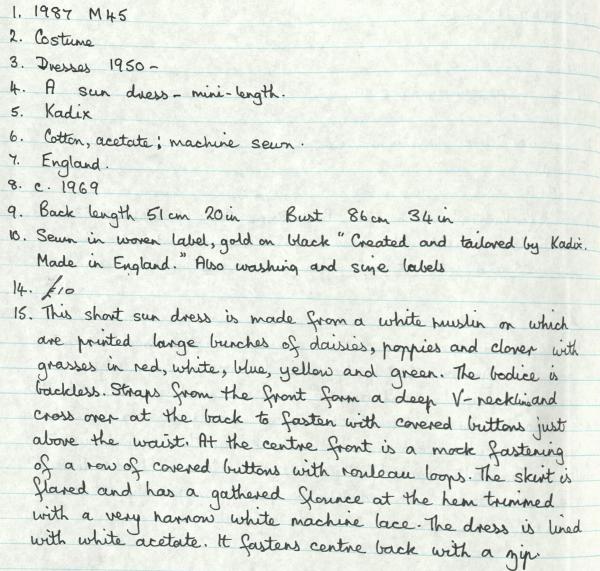 1. 1987 M45
2. Costume
3. Dresses 1950 -
4. A sun dress - mini-length.
5. Kadix
6. Cotton, acetate; machine sewn.
7. England.
8. c. 1969
9. Back length 51cm 20in Bust 86cm 34in
10. Sewn in woven label, gold on black "Created and tailored by Kadix.
Made in England." Also washing and size labels
14. £10
15. This short sun dress is made from a white muslin on which
are printed large bunches of daisies, poppies and clover with
grasses in red, white, blue, yellow and green. The bodice is
backless. Straps from the front form a deep V-neckline and
cross over at the back to fasten with covered buttons just
above the waist. At the centre front is a mock fastening
of a row of covered buttons with rouleau loops. The skirt is
flared and has a gathered flounce at the hem trimmed
with a very narrow white machine lace. The dress is lined
with white acetate. It fastens centre back with a zip.